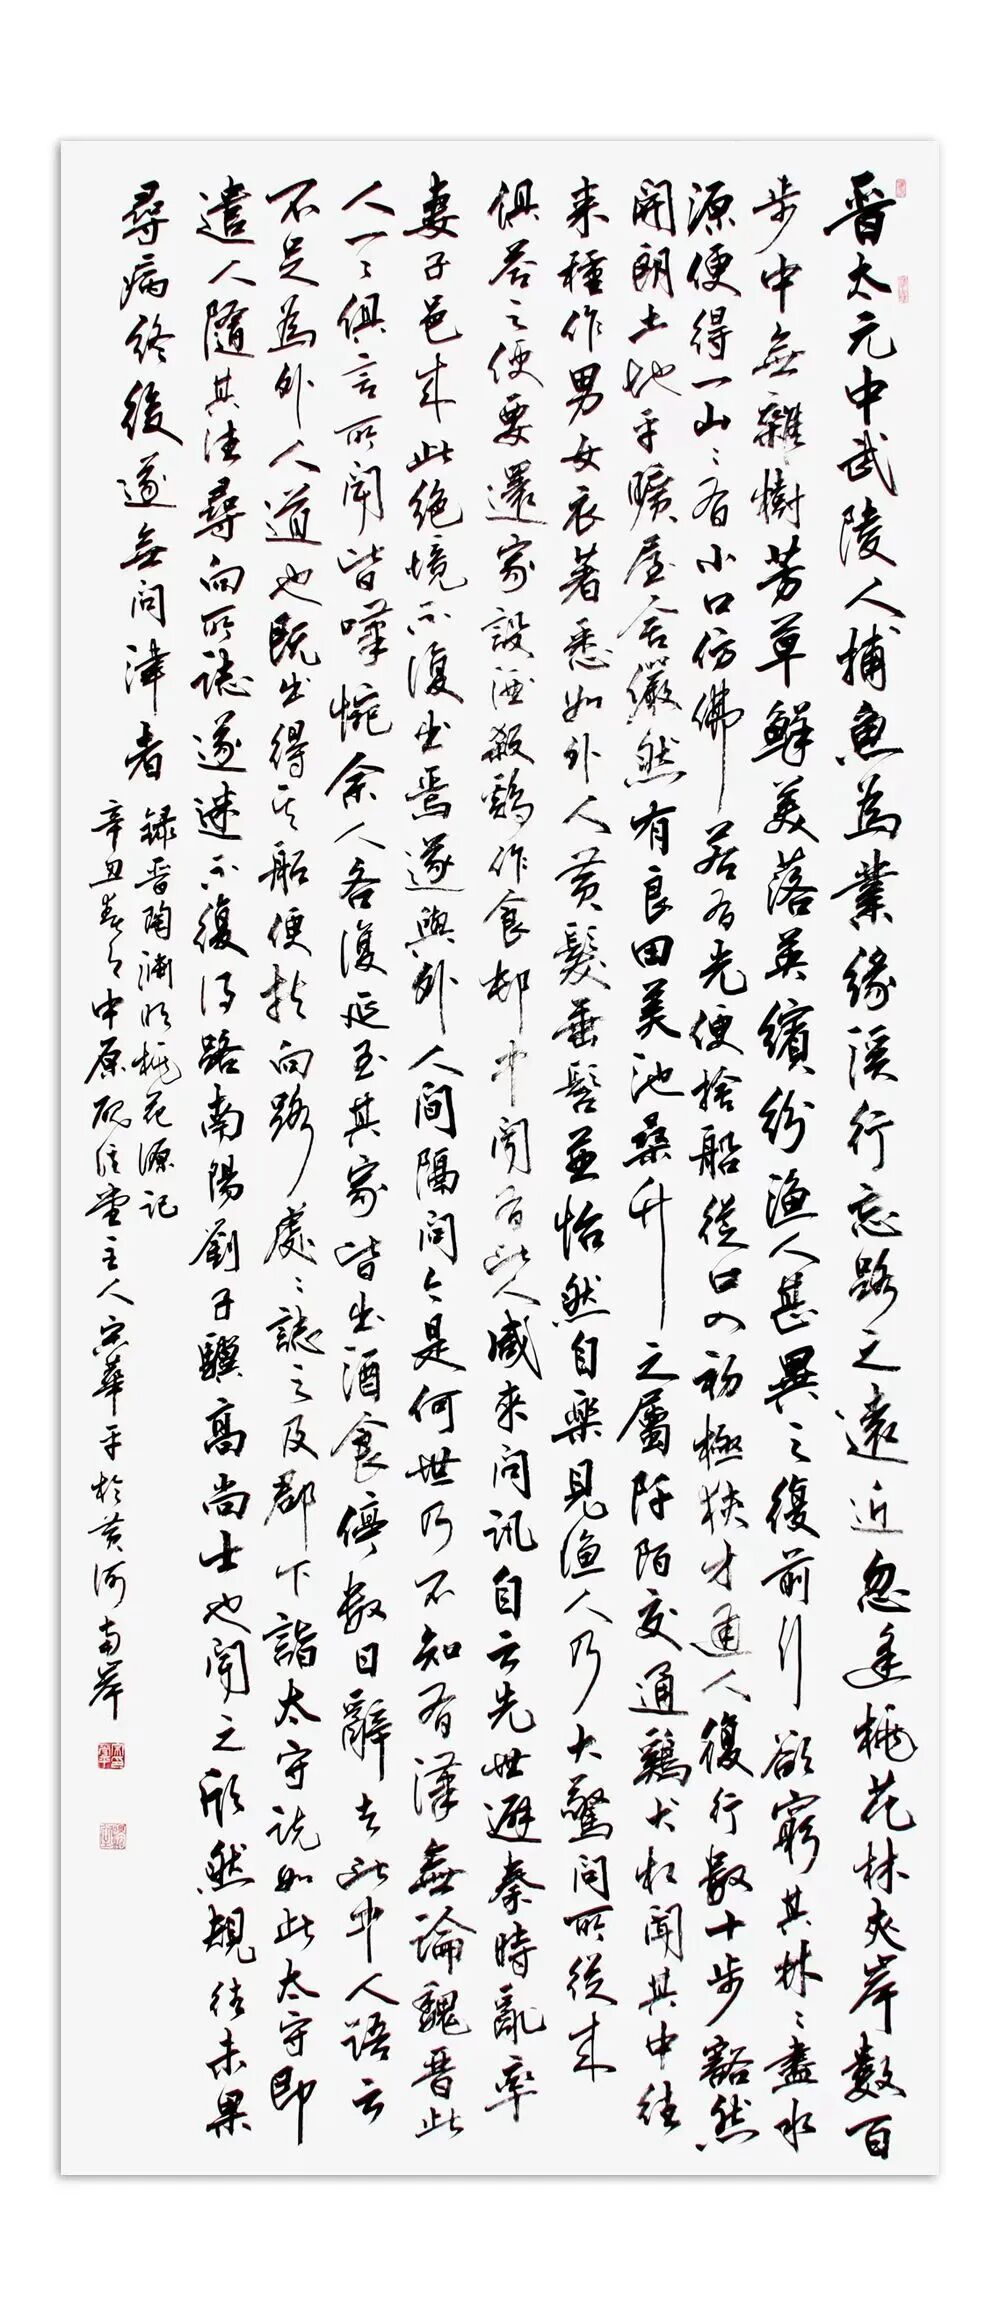 晉太元中武陵人捕魚為業緣溪行忘路之遠近忽逢桃花林夾岸數百
步中無雜樹芳草鮮美落英繽紛漁人甚異之復前行欲窮其林〻盡水
源便得一山〻有小口仿佛若有光便捨船從口入初極狹才通人復行數十步豁然
開朗土地平曠屋舍儼然有良田美池桑竹之屬阡陌交通鷄犬相聞其中往
來種作男女衣著悉如外人黃髮垂髫並怡然自樂見漁人乃大驚問所從來
俱答之便要還家設酒殺鷄作食邨中聞有此人咸來問訊自云先世避秦時亂率
妻子邑來此絕境不復出焉遂與外人間隔問今是何世乃不知有漢無論魏晉此
人一〻俱言所聞皆嘆惋余人各復延至其家皆出酒食停數日辭去此中人語云
不足為外人道也既出得其船便扶向路處〻誌之及郡下詣太守說如此太守即
遣人隨其往尋向所誌遂迷不復得路南陽劉子驥高尚士也聞之欣然規往未果
尋病終後遂無問津者
錄晉陶淵明桃花源記
辛丑春中原堂主人宋華平於黃河南岸